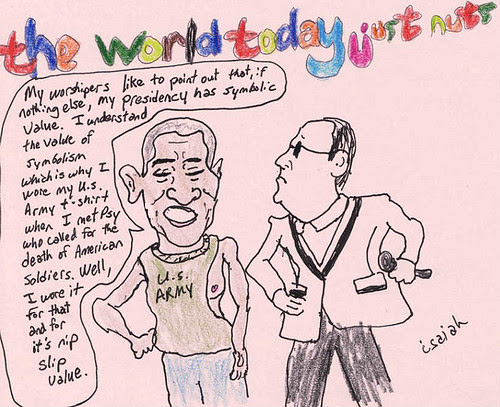 the world today just nuts
My worshipers like to point out that, if
nothing else, my presidency has symbolic
value. I understand
the value of
symbolism
which is why I
wore my U.S.
Army t-shirt
when I met Psy
who called for the
death of American
Soldiers. Well,
I wore it
for that
and for
it's nip
slip
value.
U.S.
ARMY
isaiah